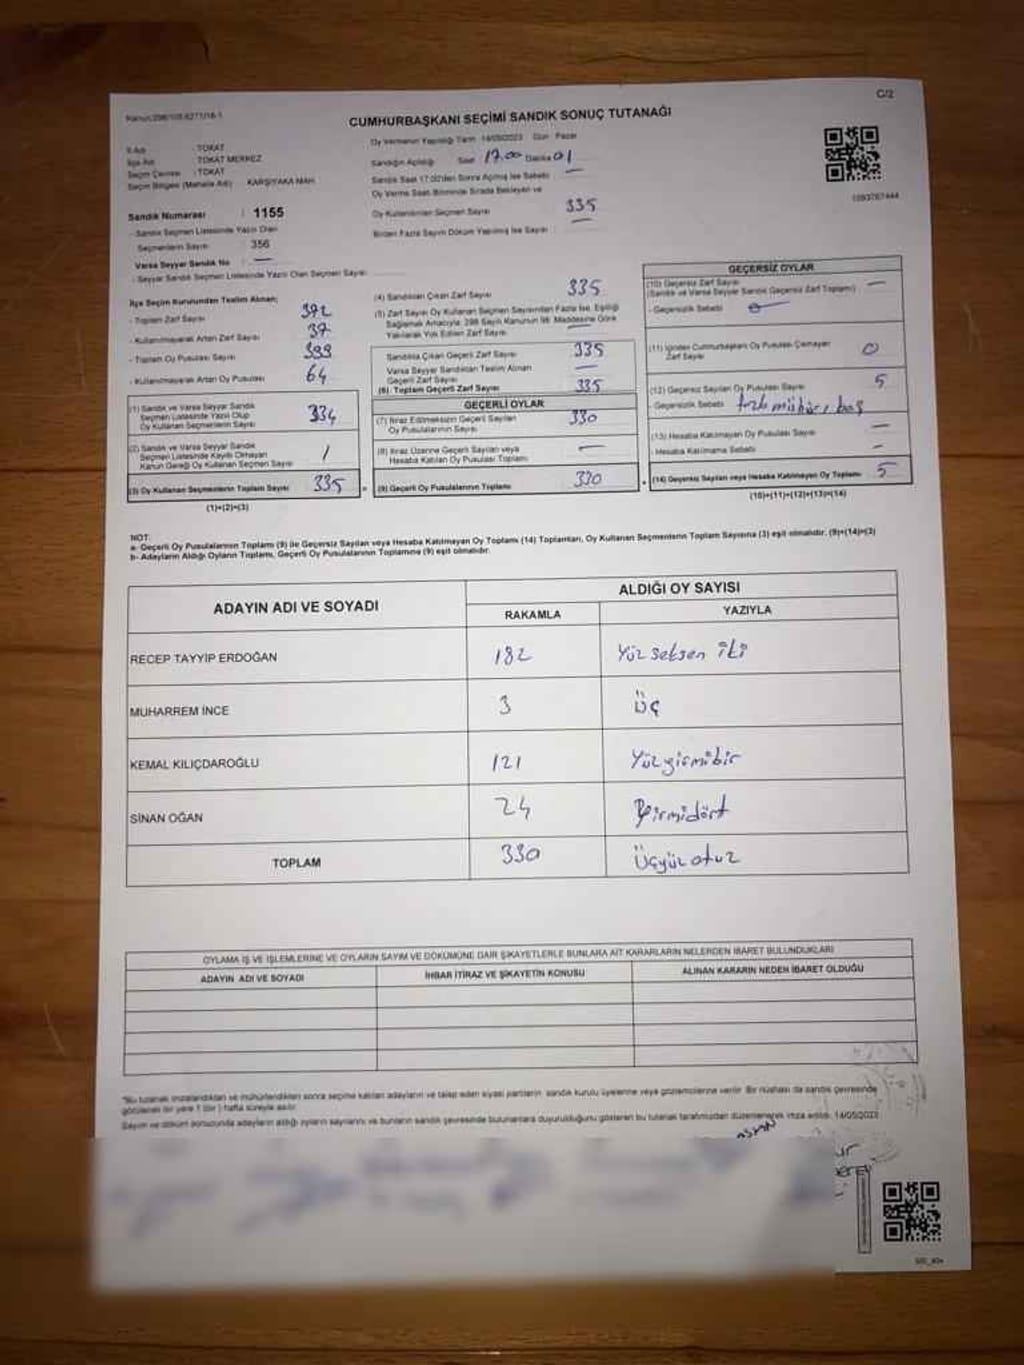 C/2
CUMHURBAŞKANI SEÇİMİ SANDIK SONUÇ TUTANAĞI
İli Adı : TOKAT
İlçe Adı : TOKAT MERKEZ
Seçim Çevresi : TOKAT
Seçim Bölgesi (Mahalle Adı) : KARŞIYAKA MAH
Oy Vermenin Yapıldığı Tarih 14/05/2023 Gün Pazar
Sandığın Açıldığı Saat 17.00 Dakika 01
Sandık Saat 17.00'den Sonra Açılmış İse Sebebi —
Oy Verme Saati Bitiminde Sırada Bekleyen ve
Oy Kullandırılan Seçmen Sayısı 335
Birden Fazla Sayım Döküm Yapılmış İse Sayısı —
Sandık Numarası : 1155
- Sandık Seçmen Listesinde Yazılı Olan
Seçmenlerin Sayısı 356
Varsa Seyyar Sandık No : —
- Seyyar Sandık Seçmen Listesinde Yazılı Olan Seçmen Sayısı
İlçe Seçim Kurulundan Teslim Alınan;
- Toplam Zarf Sayısı 372
- Kullanılmayarak Artan Zarf Sayısı 37
- Toplam Oy Pusulası Sayısı 399
- Kullanılmayarak Artan Oy Pusulası 64
(1) Sandık ve Varsa Seyyar Sandık
Seçmen Listesinde Yazılı Olup
Oy Kullanan Seçmenlerin Sayısı 334
(2) Sandık ve Varsa Seyyar Sandık
Seçmen Listesinde Kayıtlı Olmayan
Kanun Gereği Oy Kullanan Seçmen Sayısı 1
(3) Oy Kullanan Seçmenlerin Toplam Sayısı 335
(1)+(2)=(3)
(4) Sandıktan Çıkan Zarf Sayısı 335
(5) Zarf Sayısı Oy Kullanan Seçmen Sayısından Fazla İse, Eşitliği
Sağlamak Amacıyla, 298 Sayılı Kanunun 98. Maddesine Göre
Yakılarak Yok Edilen Zarf Sayısı —
Sandıkta Çıkan Geçerli Zarf Sayısı 335
Varsa Seyyar Sandıktan Teslim Alınan
Geçerli Zarf Sayısı —
(6) Toplam Geçerli Zarf Sayısı 335
GEÇERLİ OYLAR
(7) İtiraz Edilmeksizin Geçerli Sayılan
Oy Pusulalarının Sayısı 330
(8) İtiraz Üzerine Geçerli Sayılan veya
Hesaba Katılan Oy Pusulası Toplamı —
(9) Geçerli Oy Pusulalarının Toplamı 330
GEÇERSİZ OYLAR
(10) Geçersiz Zarf Sayısı —
(Sandık ve Varsa Seyyar Sandık Geçersiz Zarf Toplamı)
- Geçersizlik Sebebi
(11) İçinden Cumhurbaşkanı Oy Pusulası Çıkmayan
Zarf Sayısı 0
(12) Geçersiz Sayılan Oy Pusulası Sayısı 5
- Geçersizlik Sebebi fazla mühür, boş
(13) Hesaba Katılmayan Oy Pusulası Sayısı —
- Hesaba Katılmama Sebebi —
(14) Geçersiz Sayılan veya Hesaba Katılmayan Oy Toplamı 5
(10)+(11)+(12)+(13)=(14)
NOT:
a- Geçerli Oy Pusulalarının Toplamı (9) ile Geçersiz Sayılan veya Hesaba Katılmayan Oy Toplamı (14) Toplamları, Oy Kullanan Seçmenlerin Toplam Sayısına (3) eşit olmalıdır. (9)+(14)=(3)
b- Adayların Aldığı Oyların Toplamı, Geçerli Oy Pusulalarının Toplamına (9) eşit olmalıdır.
ADAYIN ADI VE SOYADI
ALDIĞI OY SAYISI
RAKAMLA YAZIYLA
RECEP TAYYİP ERDOĞAN 182 Yüz seksen iki
MUHARREM İNCE 3 üç
KEMAL KILIÇDAROĞLU 121 Yüzyirmibir
SİNAN OĞAN 24 Yirmidört
TOPLAM 330 Üçyüz otuz
OYLAMA İŞ VE İŞLEMLERİNE VE OYLARIN SAYIM VE DÖKÜMÜNE DAİR ŞİKAYETLERLE BUNLARA AİT KARARLARIN NELERDEN İBARET BULUNDUKLARI
ADAYIN ADI VE SOYADI İHBAR İTİRAZ VE ŞİKAYETİN KONUSU ALINAN KARARIN NEDEN İBARET OLDUĞU
*Bu tutanak imzalandıktan ve mühürlendikten sonra seçime katılan adayların ve talep eden siyasi partilerin sandık kurulu üyelerine veya gözlemcilerine verilir. Bir nüshası da sandık çevresinde
görülecek bir yere 1 (bir) hafta süreyle asılır.
Sayım ve döküm sonucunda adayların aldığı oyların sayılarını ve bunların sandık çevresinde bulunanlara duyurulduğunu gösteren bu tutanak tarafımızdan düzenlenerek imza edildi. 14/05/2023